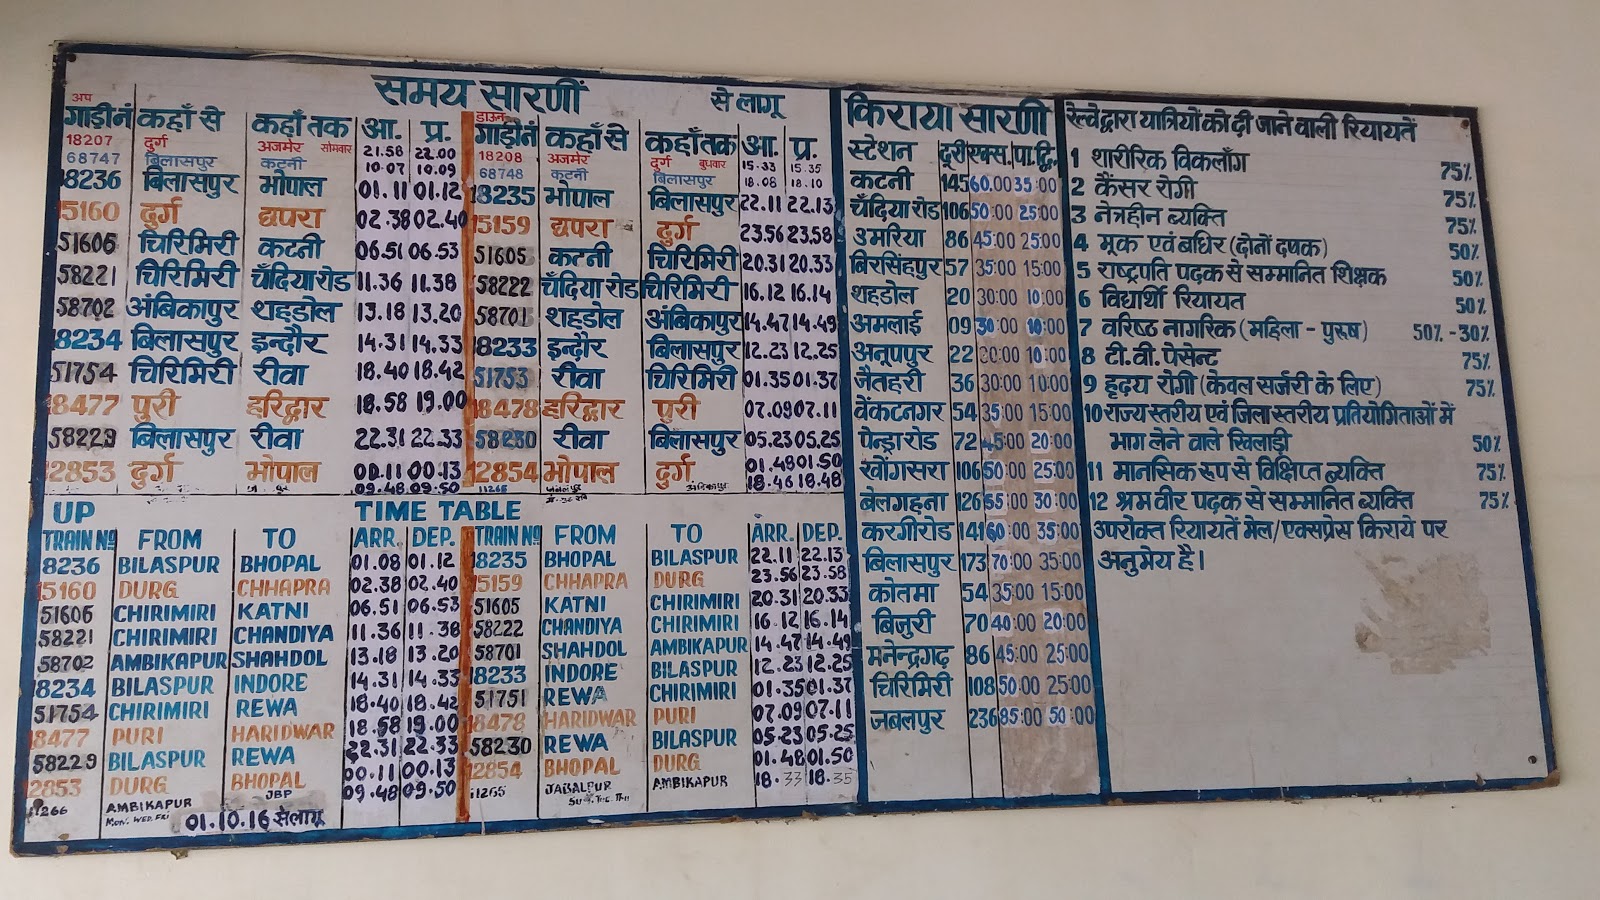 समय सारणीं से लागू
अप डाऊन
गाड़ीनं कहाँ से कहाँ तक आ. प्र. गाड़ीनं कहाँ से कहाँ तक आ. प्र.
18207 दुर्ग अजमेर सोमवार 21.58 22.00 18208 अजमेर दुर्ग बुधवार 15.33 15.35
68747 बिलासपुर कटनी 10.07 10.09 68748 कटनी बिलासपुर 18.08 18.10
18236 बिलासपुर भोपाल 01.11 01.12 18235 भोपाल बिलासपुर 22.11 22.13
15160 दुर्ग छपरा 02.38 02.40 15159 छपरा दुर्ग 23.56 23.58
51606 चिरिमिरी कटनी 06.51 06.53 51605 कटनी चिरिमिरी 20.31 20.33
58221 चिरिमिरी चँदिया रोड 11.36 11.38 58222 चँदिया रोड चिरिमिरी 16.12 16.14
58702 अंबिकापुर शहडोल 13.18 13.20 58701 शहडोल अंबिकापुर 14.47 14.49
18234 बिलासपुर इन्दौर 14.31 14.33 18233 इन्दौर बिलासपुर 12.23 12.25
51754 चिरिमिरी रीवा 18.40 18.42 51753 रीवा चिरिमिरी 01.35 01.37
18477 पुरी हरिद्वार 18.58 19.00 18478 हरिद्वार पुरी 07.09 07.11
58229 बिलासपुर रीवा 22.31 22.33 58230 रीवा बिलासपुर 05.23 05.25
12853 दुर्ग भोपाल 00.11 00.13 12854 भोपाल दुर्ग 01.48 01.50
09.48 09.50 11265 जबलपुर अंबिकापुर 18.46 18.48
UP TIME TABLE
TRAIN Nº FROM TO ARR. DEP. TRAIN Nº FROM TO ARR. DEP.
18236 BILASPUR BHOPAL 01.08 01.12 18235 BHOPAL BILASPUR 22.11 22.13
15160 DURG CHHAPRA 02.38 02.40 15159 CHHAPRA DURG 23.56 23.58
51606 CHIRIMIRI KATNI 06.51 06.53 51605 KATNI CHIRIMIRI 20.31 20.33
58221 CHIRIMIRI CHANDIYA 11.36 11.38 58222 CHANDIYA CHIRIMIRI 16.12 16.14
58702 AMBIKAPUR SHAHDOL 13.18 13.20 58701 SHAHDOL AMBIKAPUR 14.47 14.49
18234 BILASPUR INDORE 14.31 14.33 18233 INDORE BILASPUR 12.23 12.25
51754 CHIRIMIRI REWA 18.40 18.42 51751 REWA CHIRIMIRI 01.35 01.37
18477 PURI HARIDWAR 18.58 19.00 18478 HARIDWAR PURI 07.09 07.11
58229 BILASPUR REWA 22.31 22.33 58230 REWA BILASPUR 05.23 05.25
12853 DURG BHOPAL 00.11 00.13 12854 BHOPAL DURG 01.48 01.50
11266 AMBIKAPUR JBP 09.48 09.50 11265 JABALPUR AMBIKAPUR 18.33 18.35
MON. WED. FRI
01.10.16 से लागू
किराया सारणी
स्टेशन दूरी एक्स. पा. द्वि.
कटनी 145 60.00 35:00
चँदिया रोड 106 50:00 25:00
उमरिया 86 45:00 25:00
बिरसिंहपुर 57 35:00 15:00
शहडोल 20 30:00 10:00
अमलाई 09 30:00 10:00
अनूपपुर 22 30:00 10:00
जैतहरी 36 30:00 10:00
वेंकटनगर 54 35:00 15:00
पेन्ड्रा रोड 72 45:00 20:00
खोंगसरा 106 50:00 25:00
बेलगहना 126 55:00 30:00
करगीरोड 141 60:00 35:00
बिलासपुर 173 70:00 35:00
कोतमा 54 35:00 15:00
बिजुरी 70 40:00 20:00
मनेन्द्रगढ़ 86 45:00 25:00
चिरिमिरी 108 50:00 25:00
जबलपुर 236 85:00 50:00
रेल्वेद्वारा यात्रियों को दी जाने वाली रियायतें
1 शारीरिक विकलाँग 75%
2 कैंसर रोगी 75%
3 नेत्रहीन व्यक्ति 75%
4 मूक एवं बधिर (दोनों दषक) 50%
5 राष्ट्रपति पदक से सम्मानित शिक्षक 50%
6 विद्यार्थी रियायत 50%
7 वरिष्ठ नागरिक (महिला - पुरूष) 50%-30%
8 टी.वी. पेसेन्ट 75%
9 हृदय रोगी (केवल सर्जरी के लिए) 75%
10 राज्य स्तरीय एवं जिला स्तरीय प्रतियोगिताओं में
भाग लेने वाले खिलाड़ी 50%
11 मानसिक रूप से विक्षिप्त व्यक्ति 75%
12 श्रम वीर पदक से सम्मानित व्यक्ति 75%
उपरोक्त रियायतें मेल/एक्सप्रेस किराये पर
अनुमेय है।